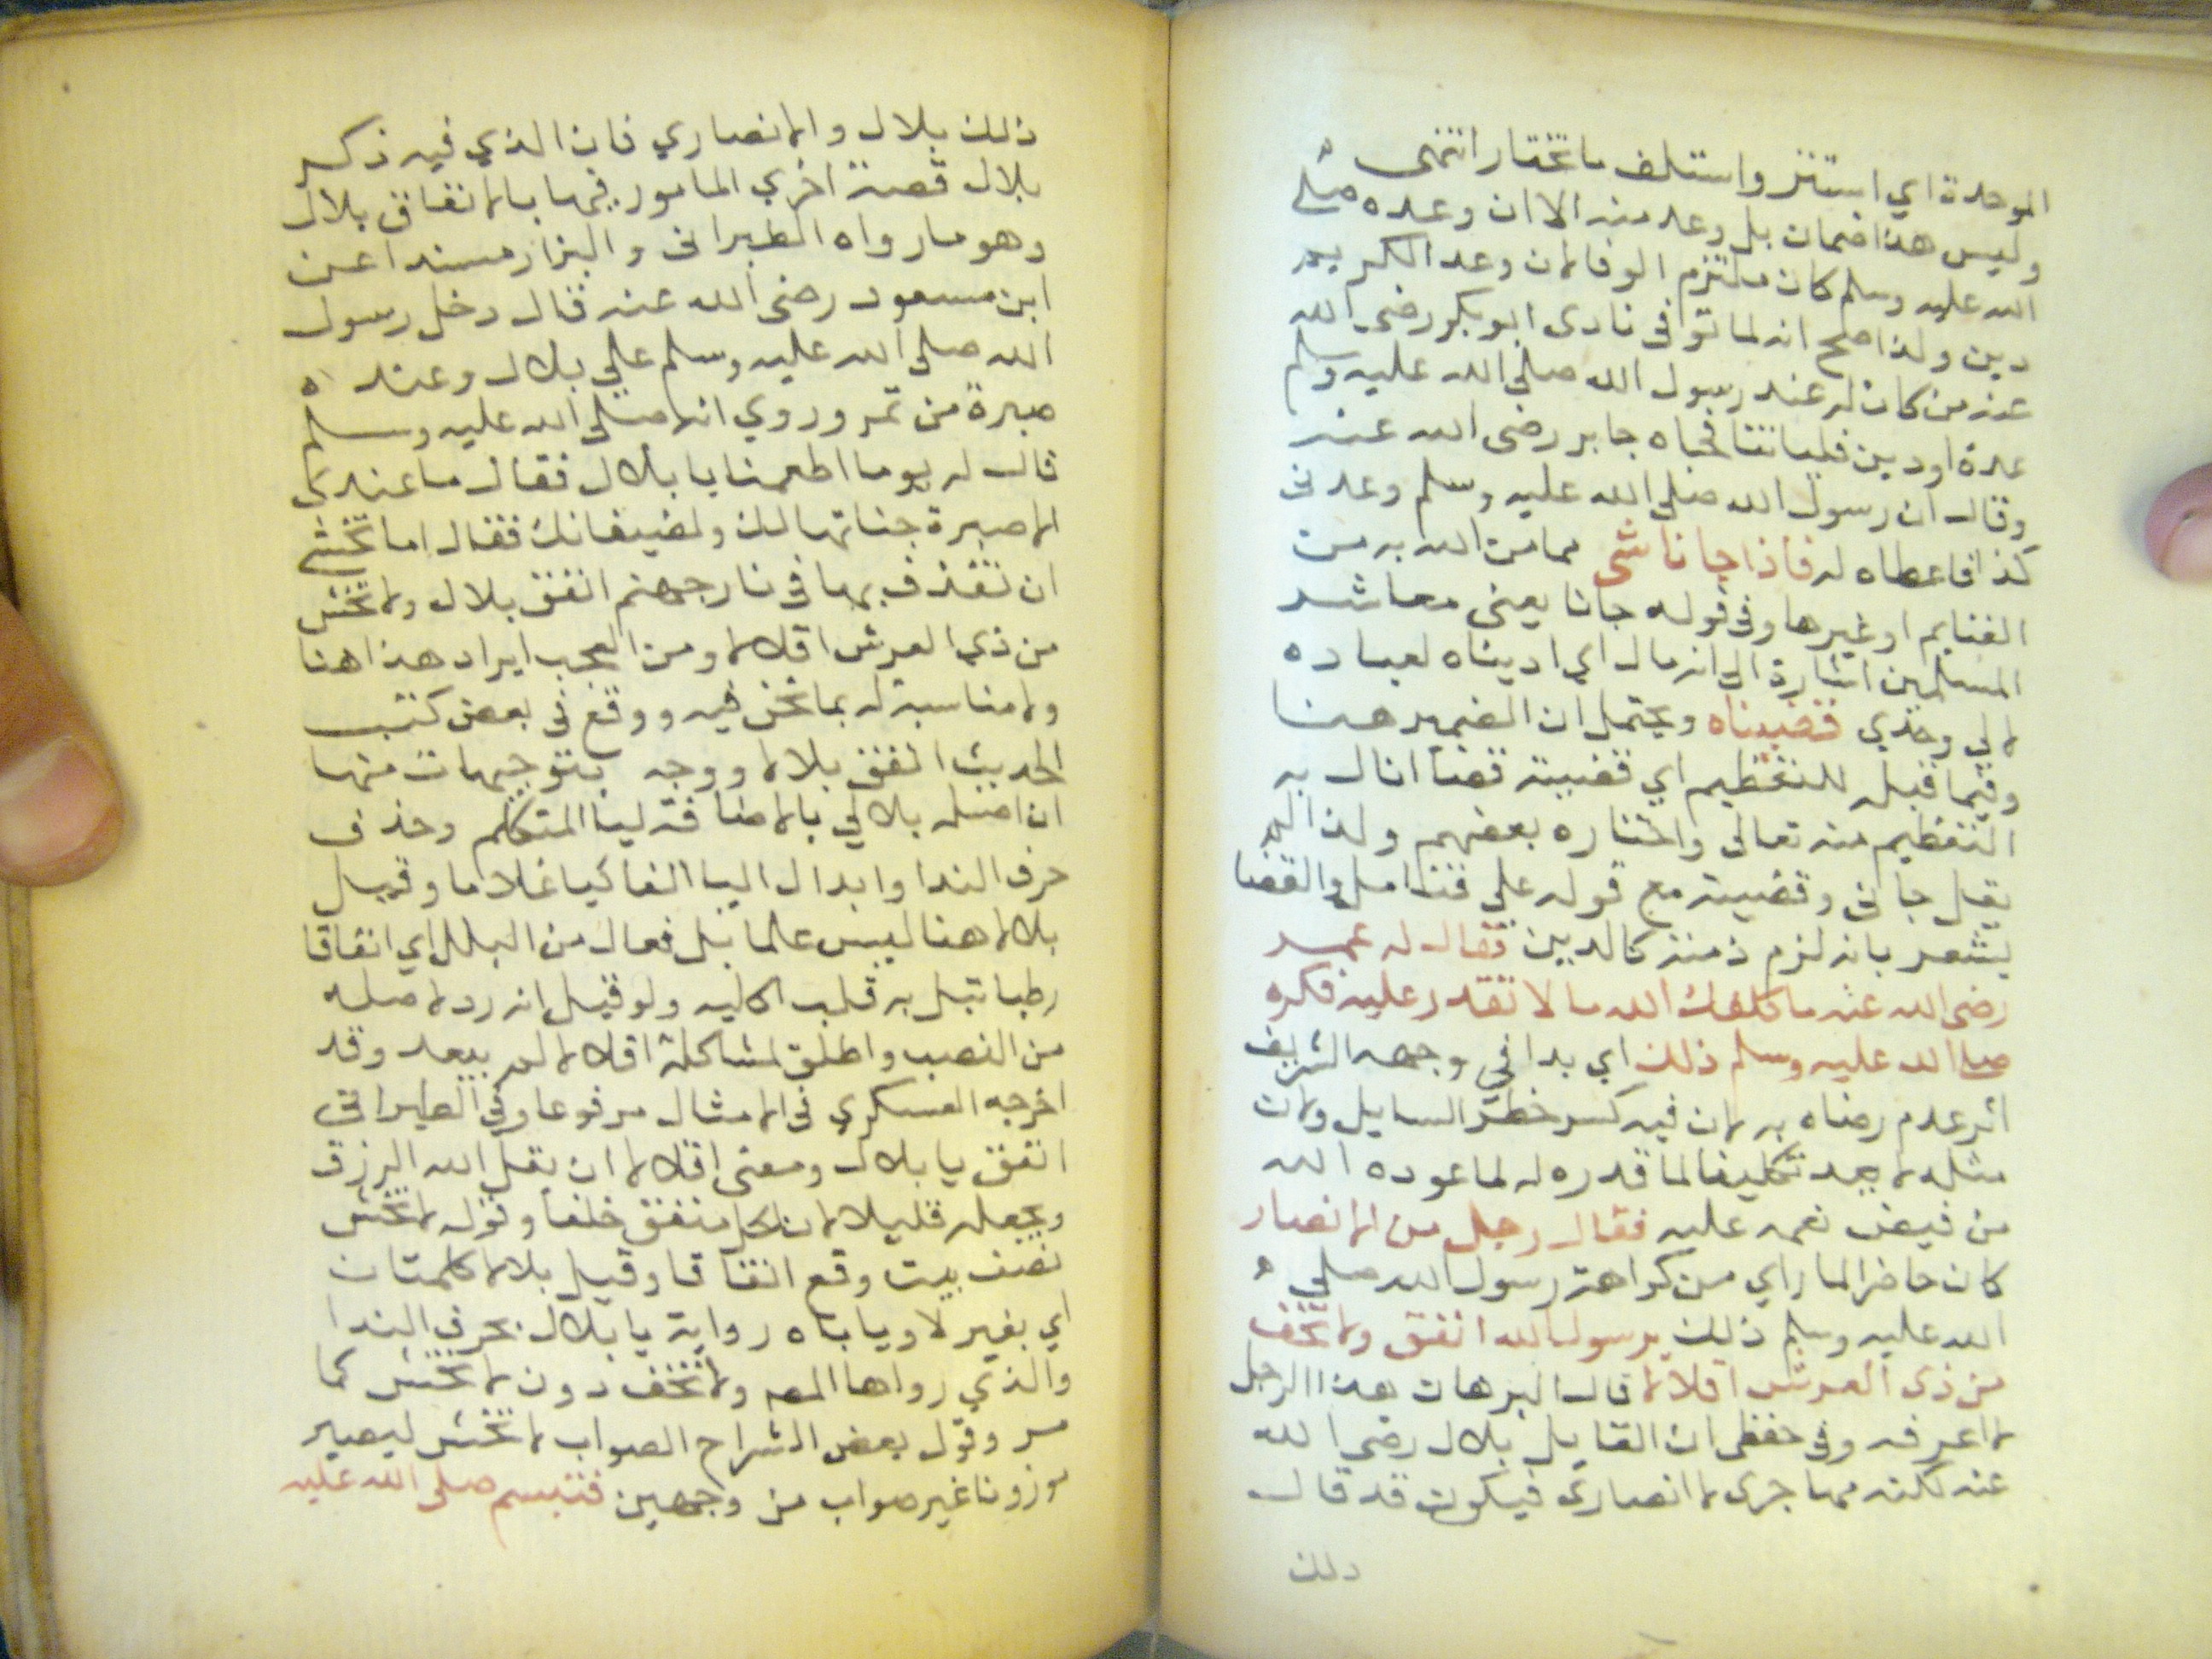 الموحدة اي استتر واستلف ما تختار انتهى
وليس هذا ضمان بل وعد منه الا ان وعده صلى
الله عليه وسلم كان ملتزم الوفا لان وعد الكريم
دين ولذا صح انه لما توفى نادى ابو بكر رضى الله
عنه من كان له عند رسول الله صلى الله عليه وسلم
عدة او دين فلياتنا فجاه جابر رضى الله عنه
وقال ان رسول الله صلى الله عليه وسلم وعدنى
كذا فاعطاه له فاذا جانا شى مما من الله به من
الغنايم او غيرها وفى قوله جانا يعنى معاشر
المسلمين اشارة الى انه مال اي اديناه لعباده
لا لي وحدي قضيناه ويحتمل ان الضمير هنا
وفيما قبله للتعظيم اي قضيته قضا انال به
التعظيم منه تعالى واختاره بعضهم ولذا لم
يقل جانى وقضيته مع قوله علي فتامل والقضا
يشعر بانه لزم ذمته كالدين فقال له عمر
رضى الله عنه ما كلفك الله ما لا تقدر عليه فكره
صلى الله عليه وسلم ذلك اي بدا في وجهه الشريف
اثر عدم رضاه به لان فيه كسر خطر السايل ولان
مثله لا يعد تكليفا لما قدره له لما عوده الله
من فيض نعمه عليه فقال رجل من الانصار
كان حاضرا لما راي من كراهة رسول الله صلى
الله عليه وسلم ذلك يرسول الله انفق ولا تخف
من ذى العرش اقلالا قال البرهان هذا الرجل
لا اعرفه وفى حفظى ان القايل بلال رضى الله
عنه لكنه مهاجرى لا انصارى فيكون قد قال
ذلك
ذلك بلال والانصاري فان الذي فيه ذكر
بلال قصة اخري المامور فيها بالانفاق بلال
وهو ما رواه الطبرانى والبزار مسندا عن
ابن مسعود رضى الله عنه قال دخل رسول
الله صلى الله عليه وسلم علي بلال وعنده
صبرة من تمر وروي انه صلى الله عليه وسلم
قال له يوما اطعمنا يا بلال فقال ما عندى
الا صبرة خباتها لك ولضيفانك فقال اما تخشى
ان تقذف بها فى نار جهنم انفق بلال ولا تخش
من ذي العرش اقلالا ومن العجب ايراد هذا هنا
ولا مناسبة له بما نحن فيه ووقع فى بعض كتب
الحديث انفق بلالا ووجه بتوجيهات منها
ان اصله بلالي بالاضافة ليا المتكلم وحذف
حرف الندا وابدال اليا الفا كيا غلاما وقيل
بلالا هنا ليس علما بل فعال من البلل اي انفاقا
رطبا تبل به قلب اكليه ولو قيل انه رد لاصله
من النصب واطلق لمشاكلة اقلالا لم يبعد وقد
اخرجه العسكري فى الامثال مرفوعا وفي الطبراني
انفق يا بلال ومعنى اقلالا ان يقل الله الرزق
ويجعله قليلا لان لكل منفق خلفا وقوله لا تخش
نصف بيت وقع اتفاقا وقيل بلالا كلمتان
اي بغير لا وياباه رواية يا بلال بحرف الندا
والذي رواها المصه ولا تخف دون لا تخش كما
مر وقول بعض الشراح الصواب لا تخش ليصير
موزونا غير صواب من وجهين فتبسم صلى الله عليه